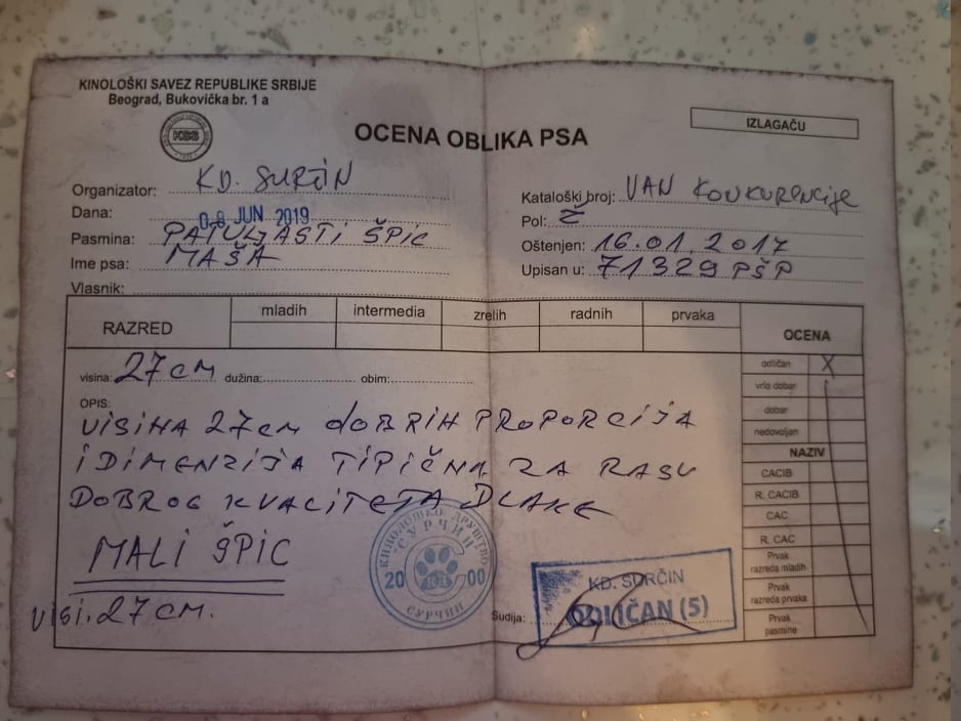 KINOLOŠKI SAVEZ REPUBLIKE SRBIJE
Beograd, Bukovička br. 1 a
KSS
OCENA OBLIKA PSA
IZLAGAČU
Organizator: KD. SURČIN
Dana: 08 JUN 2019
Pasmina: PATULJASTI ŠPIC
Ime psa: MAŠA
Vlasnik:
Kataloški broj: VAN KONKURENCIJE
Pol: Ž
Oštenjen: 16.01.2017
Upisan u: 71329 PŠP
RAZRED mladih intermedia zrelih radnih prvaka
visina: 27 cm dužina: obim:
OPIS:
VISINA 27 cm DOBRIH PROPORCIJA
I DIMENZIJA TIPIČNA ZA RASU
DOBROG KVALITETA DLAKE
MALI ŠPIC
VISI. 27 cm.
КИНОЛОШКО ДРУШТВО
"СУРЧИН"
20 00
СУРЧИН
Sudija:
KD. SURČIN
ODLIČAN (5)
OCENA
odličan X
vrlo dobar
dobar
nedovoljan
NAZIV
CACIB
R. CACIB
CAC
R. CAC
Prvak
razreda mladih
Prvak
razreda prvaka
Prvak
pasmine